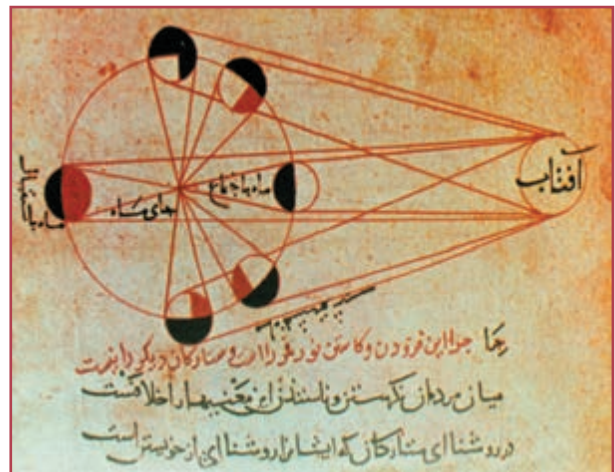 آفتاب
ماه باجتماع
جای ماه
ماه باستقبال
چرا این فزودن و کاستن نور قمر را است و ستارگان دیگر را نیست
میان مردمان این معنیها را خلافست
در روشنائی ستارگان که ایشانرا روشنائی از خویشتن است